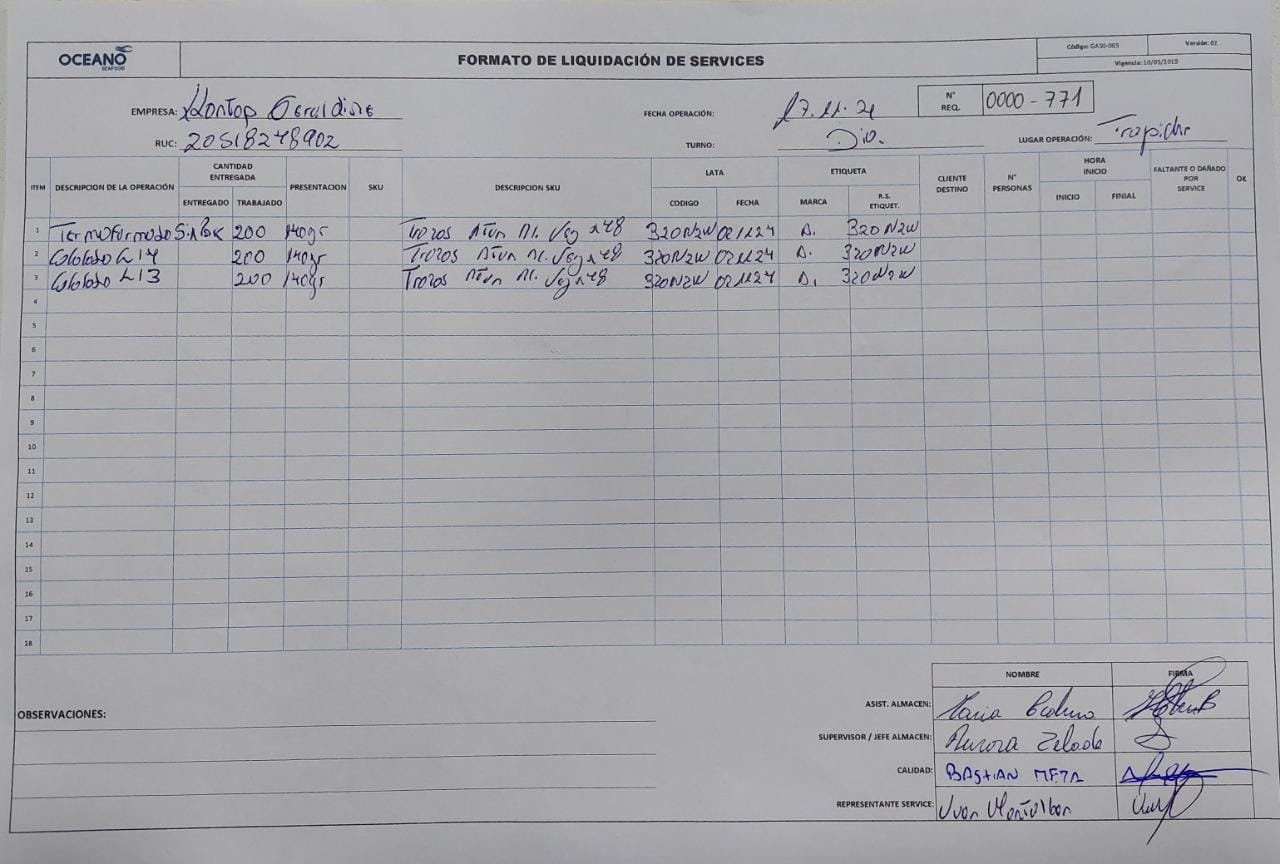 OCEANO
SEAFOOD
FORMATO DE LIQUIDACIÓN DE SERVICES
Código: GASO-005
Versión: 02
Vigencia: 10/05/2019
EMPRESA: Geraldine
FECHA OPERACIÓN: 27.11.24
N° REQ. 0000 - 771
RUC: 20518278902
TURNO: Dia.
LUGAR OPERACIÓN: Trapiche
ITEM DESCRIPCION DE LA OPERACIÓN CANTIDAD ENTREGADA PRESENTACION SKU DESCRIPCION SKU LATA ETIQUETA CLIENTE DESTINO N° PERSONAS HORA INICIO FALTANTE O DAÑADO POR SERVICE OK
ENTREGADO TRABAJADO CODIGO FECHA MARCA R.S. ETIQUET. INICIO FINIAL
1 Termoformado 200 140gr Trozos Atun Al. Veg x48 320N2W 021124 A. 320N2W
2 L14 200 140gr Trozos Atun Al. Veg x48 320N2W 021124 A. 320N2W
3 L13 200 140gr Trozos Atun Al. Veg x48 320N2W 021124 A. 320N2W
4
5
6
7
8
9
10
11
12
13
14
15
16
17
18
OBSERVACIONES:
NOMBRE FIRMA
ASIST. ALMACEN: Maria
SUPERVISOR / JEFE ALMACEN: Aurora Zelada
CALIDAD: BASTIAN MEZA
REPRESENTANTE SERVICE: Montalban